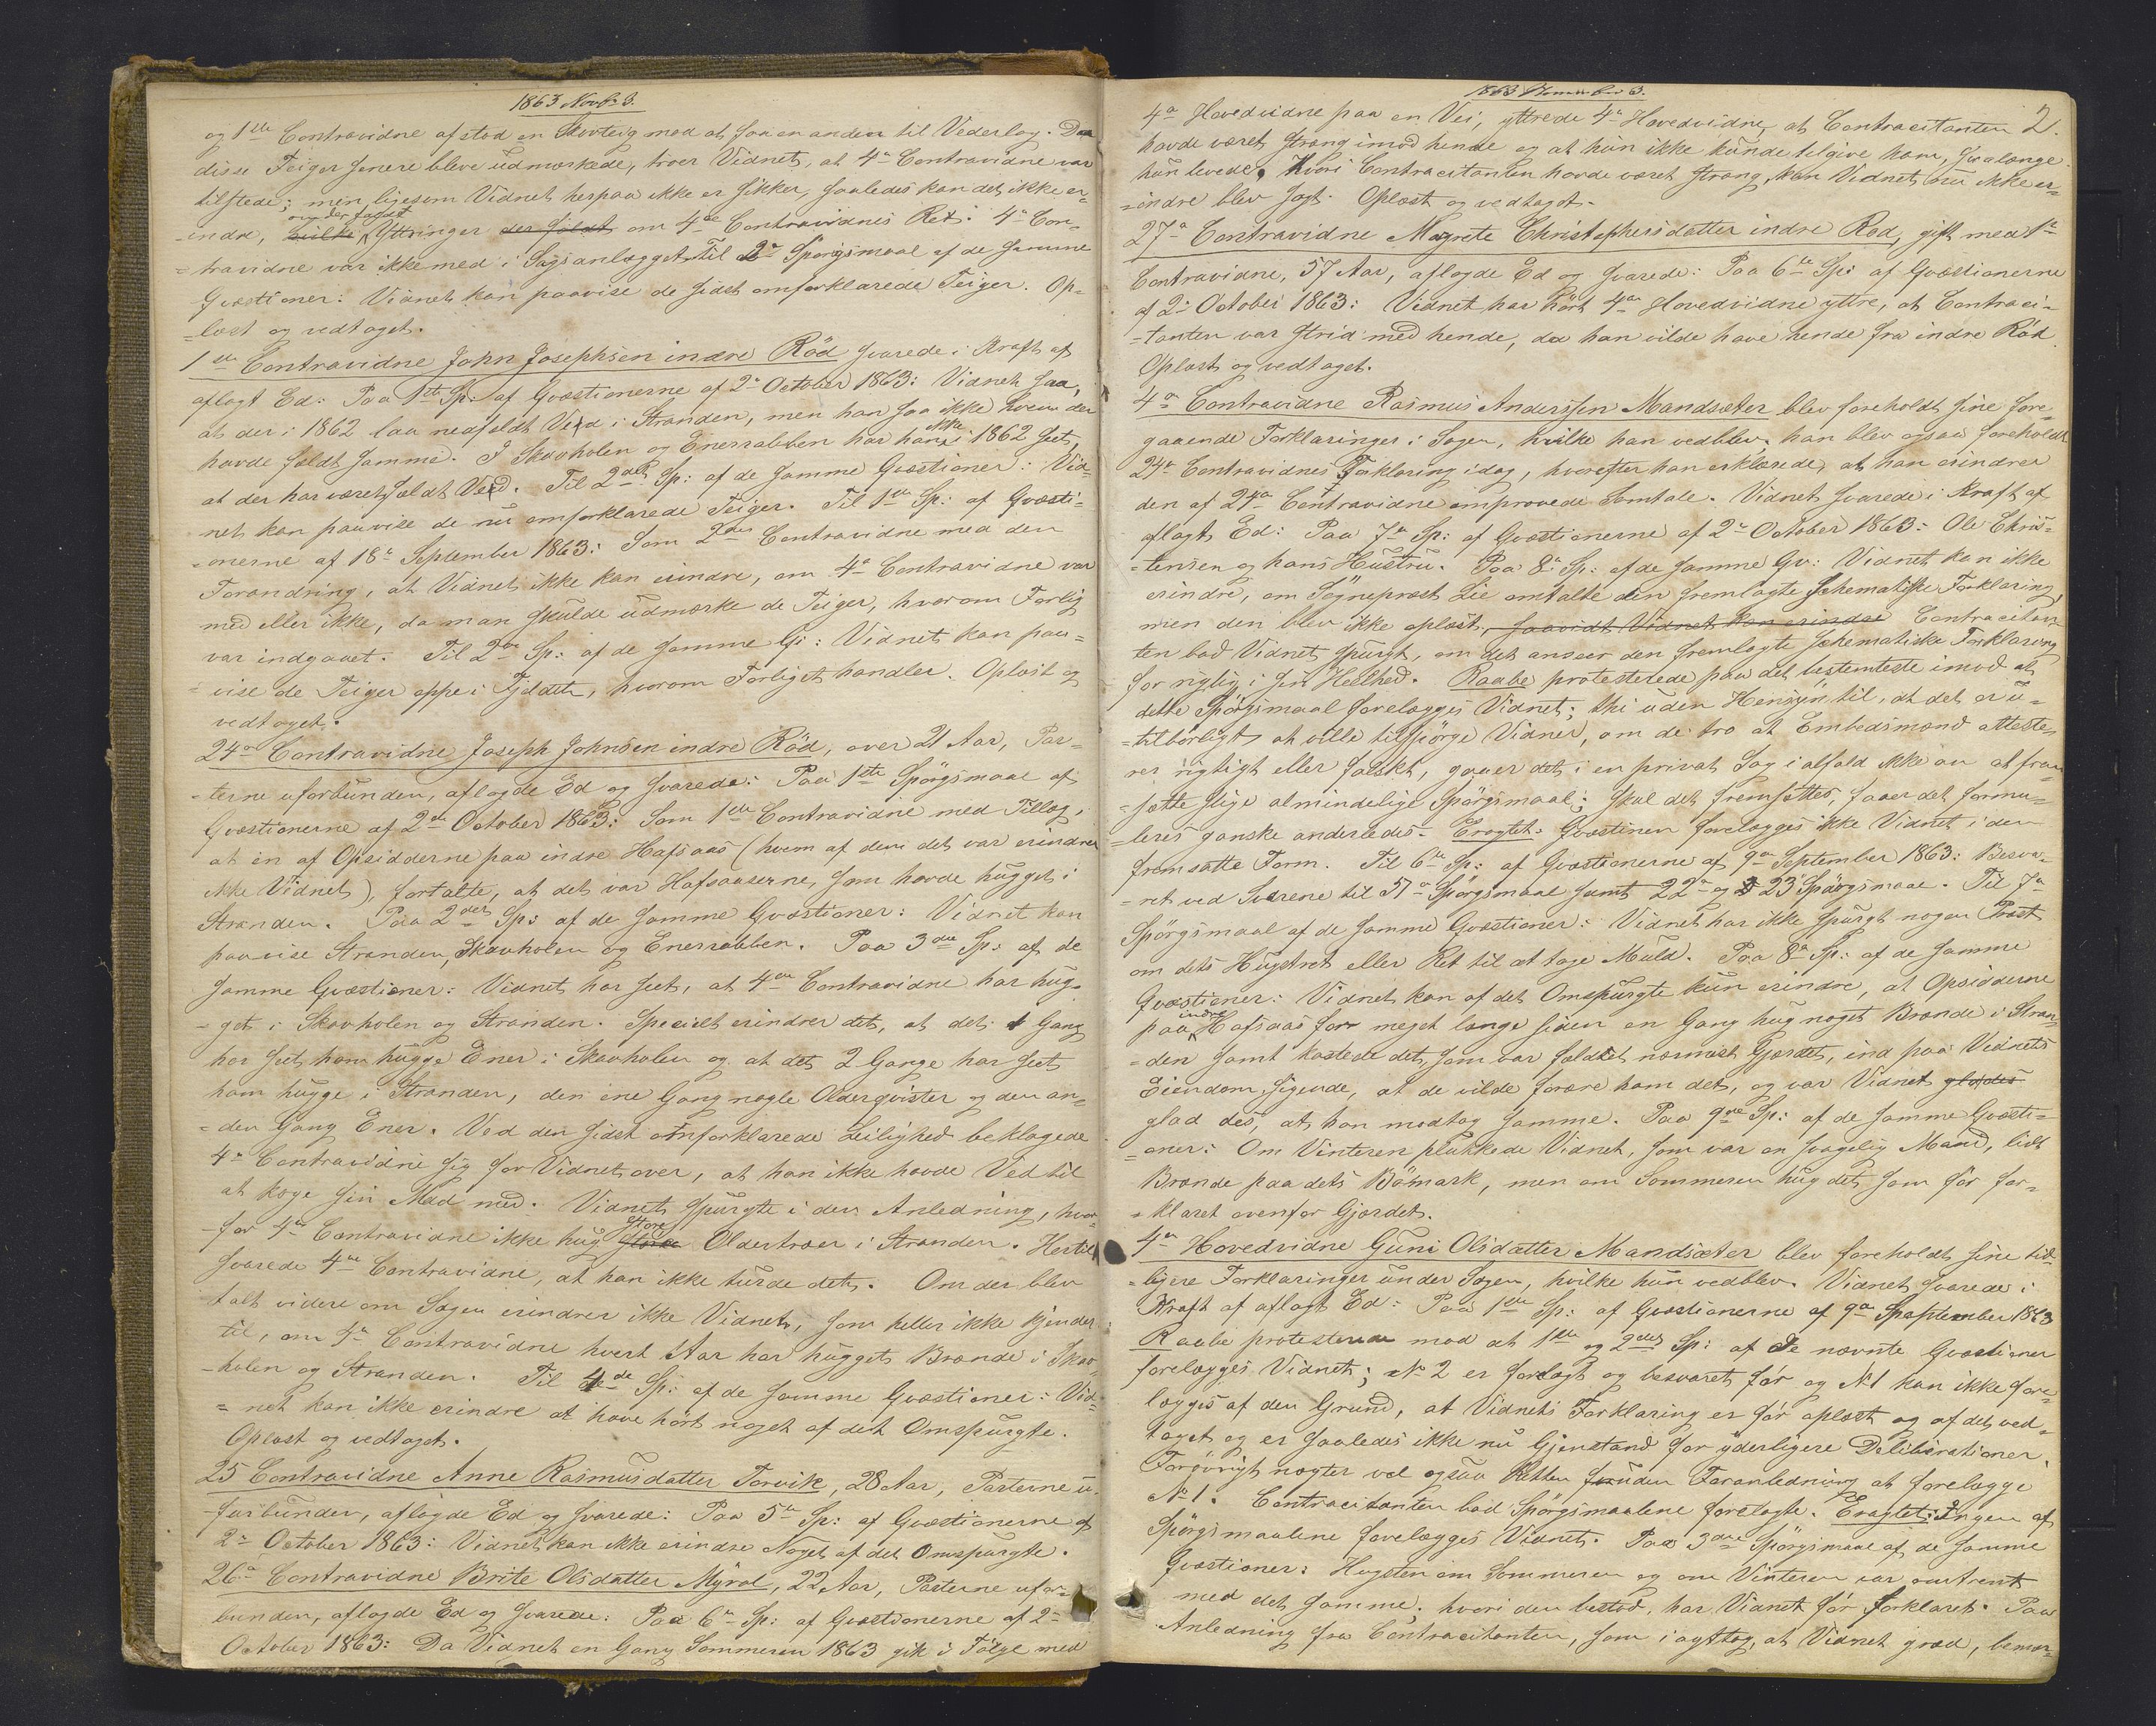 1863 Novbr 3.
og 1ste Contravidne afstod en Skovteig mod at faa en anden til Vederlag. Da
disse Teiger senere bleve udmærkede, troer Vidnet, at 4de Contravidne var
tilstede; men ligesom Vidnet herpaa ikke er sikker, saaledes kan det ikke er=
=indre, hvilke om der faldt Yttringer der faldt om 4de Contravidnes Ret. 4de Con=
=travidne var ikke med i Sagsanlægget. Til 2det Spörgsmaal af de samme
Qvæstioner: Vidnet kan paavise de sidst omforklarede Teiger. Op=
=læst og vedtaget.
1ste Contravidne John Josephsen indre Röd svarede i Kraft af
aflagt Ed: Paa 1ste Sp: af Qvæstionerne af 2de October 1863: Vidnet saa,
at der i 1862 laa nedfældt Ved i Stranden, men han saa ikke hvem der
havde fældt samme. I Skovholen og Enerrabben har han ikke i 1862 seet,
at der har været fældt Ved. Til 2det Sp: af de samme Qvæstioner: Vid=
net kan paavise de nu omforklarede Teiger. Til 1ste Sp: af Qvæsti=
=onerne af 18de September 1863: Som 2det Contravidne med den
Forandring, at Vidnet ikke kan erindre, om 4de Contravidne var
med eller ikke, da man skulde udmærke de Teiger, hvorom Forlig
var indgaaet. Til 2det Sp: af de samme Qv: Vidnet kan paa=
=vise de Teiger oppe i Fjeldet, hvorom Forliget handler. Oplæst og
vedtaget.
24de Contravidne Joseph Johnsen indre Röd, over 21 Aar, Par=
=terne uforbunden, aflagde Ed og svarede: Paa 1ste Spörgsmaal af
Qvæstionerne af 2den October 1863: Som 1ste Contravidne med Tillæg,
at en af Opsidderne paa indre Hafsaas (hvem af dem det var erindrer
ikke Vidnet), fortalte, at det var Hafsaaserne, som havde hugget i
Stranden. Paa 2det Sp: af de samme Qvæstioner: Vidnet kan
paavise Stranden, Skovholen og Enerrabben. Paa 3die Sp: af de
samme Qvæstioner: Vidnet har seet, at 4de Contravidne har hug=
=get i Skovholen og Stranden. Specielt erindrer det, at det 1 Gang
har seet ham hugge Ener i Skovholen og at det 2 Gange har seet
ham hugge i Stranden, den ene Gang nogle Olderqvister og den an=
=den Gang Ener. Ved den sidst omforklarede Leilighed beklagede
4de Contravidne sig for Vidnet over, at han ikke havde Ved til
at koge sin Mad med. Vidnet spurgte i den Anledning, hvor=
=for 4de Contravidne ikke hug större store Oldertræer i Stranden. Hertil
svarede 4de Contravidne, at han ikke turde det. Om der blev
talt videre om Sagen erindrer ikke Vidnet, som heller ikke kjender
til, om 4de Contravidne hvert Aar har hugget Brænde i Skov=
=holen og Stranden. Til 4de Sp: af de samme Qvæstioner: Vid=
=net kan ikke erindre at have hört noget af det Omspurgte.
Oplæst og vedtaget.
25 Contravidne Anne Rasmusdatter Torvik, 28 Aar, Parterne u=
=forbunden, aflagde Ed og svarede: Paa 5te Sp: af Qvæstionerne af
2de October 1863: Vidnet kan ikke erindre Noget af det Omspurgte.
26de Contravidne Brite Olsdatter Myrol, 22 Aar, Parterne ufor=
bunden, aflagde Ed og svarede: Paa 6te Sp: af Qvæstionerne af 2de
October 1863: Da Vidnet en Gang Sommeren 1863 gik i Fölge med
1863 November 3.
2.
4de Hovedvidne paa en Vei, yttrede 4de Hovedvidne, at Contracitanten
havde været streng imod hende og at hun ikke kunde tilgive ham, saalænge
hun levede. Hvori Contracitanten havde været streng, kan Vidnet nu ikke er=
=indre blev sagt. Oplæst og vedtaget.
27de Contravidne Magrete Christophersdatter indre Rød, gift med 1ste
Contravidne, 57 Aar, aflagde Ed og svarede: Paa 6te Sp: af Qvæstionerne
af 2de October 1863: Vidnet har hört 4de Hovedvidne yttre, at Contraci=
=tanten var strid med hende, da han vilde have hende fra indre Röd.
Oplæst og vedtaget.
4de Contravidne Rasmus Anderssen Mandsæter blev foreholdt sine fore=
gaaende Forklaringer i Sagen, hvilke han vedblev. han blev ogsaa foreholdt
24de Contravidnes Forklaring idag, hvorefter han erklærede, at han erindrer
den af 24de Contravidne omprovede Samtale. Vidnet svarede i Kraft af
aflagt Ed: Paa 7de Sp: af Qvæstionerne af 2de October 1863: Ole Chris=
=tensen og hans Hustru. Paa 8de Sp: af de samme Qv: Vidnet kan ikke
erindre, om Sögnepræst Lie omtalte den fremlagte schematiske Forklaring,
men den blev ikke oplæst, saavidt Vidnet kan erindre Contracitan=
ten bad Vidnet spurgt, om det anseer den fremlagte schematiske Forklaring
for rigtig i sin Heelhed. Raabe protesterede paa det bestemteste imod at
dette Spörgsmaal forelægges Vidnet; thi uden Hensyn til, at det er u=
=tilbörligt at ville tilspörge Vidner, om de tro at Embedsmænd atteste=
rer rigtigt eller falskt, gaaer det i en privat Sag i alfald ikke an at frem=
=sætte slige almindelige Spörgsmaal; skal det fremsættes, faaer det formu=
=leres ganske anderledes. Eragtet: Qvæstinen forelægges ikke Vidnet i den
fremsatte Form. Til 6te Sp: af Qvæstionerne af 9de September 1863: Besva=
=ret ved Svarene til 51de Spörgsmaal samt 22de og 23de Spörgsmaal. Til 7de
Spörgsmaal af de samme Qvæstioner: Vidnet har ikke spurgt nogen Præst
om dets Hugstret eller Ret til at tage Muld. Paa 8de Sp: af de samme
Qvæstioner: Vidnet kan af det Omspurgte kun erindre, at Opsidderne
paa indre Hafsaas for meget længe siden en Gang hug noget Brænde i Stran=
=den samt kastede det, som var fældtet nærmest Gjærdet, ind paa Vidnets
Eiendom, sigende, at de vilde forære ham det, og var Vidnet glad des
glad des, at han modtog samme. Paa 9de Sp: af de samme Qvæsti=
=oner: Om Vinteren plukkede Vidnet, som var en svagelig Mand, lidt
Brænde paa dets Bömark, men om Sommeren hug det, som för for=
=klaret ovenfor Gjærdet.
4de Hovedvidne Guni Olsdatter Mandsæter blev foreholdt sine tid=
=ligere Forklaringer under Sagen, hvilke hun vedblev. Vidnet svarede i
Kraft af aflagt Ed: Paa 1ste Sp: af Qvæstionerne af 9de September 1863
Raabe protesterede mod at 1ste og 2det Sp: af de nævnte Qvæstioner
forelægges Vidnet; No 2 er forelagt og besvaret för og No 1 kan ikke fore=
lægges af den Grund, at Vidnets Forklaring er för oplæst og af det ved=
taget og er saaledes ikke nu Gjenstand for yderligere Deliberationer.
Forövrigt nægter vel ogsaa Retten foruden Foranledning at forelægge
No 1. Contracitanten bad Spörgsmaalene forelagte. Eragtet: Ingen af
Spörgsmaalene forelægges Vidnet. Paa 3die Spörgsmaal af de samme
Qvæstioner: Hugsten om Sommeren og om Vinteren var omtrent
med det samme; hvori den bestod, har Vidnet för forklaret. Paa
Anledning fra Contracitanten, som iagttog, at Vidnet græd, bemær=